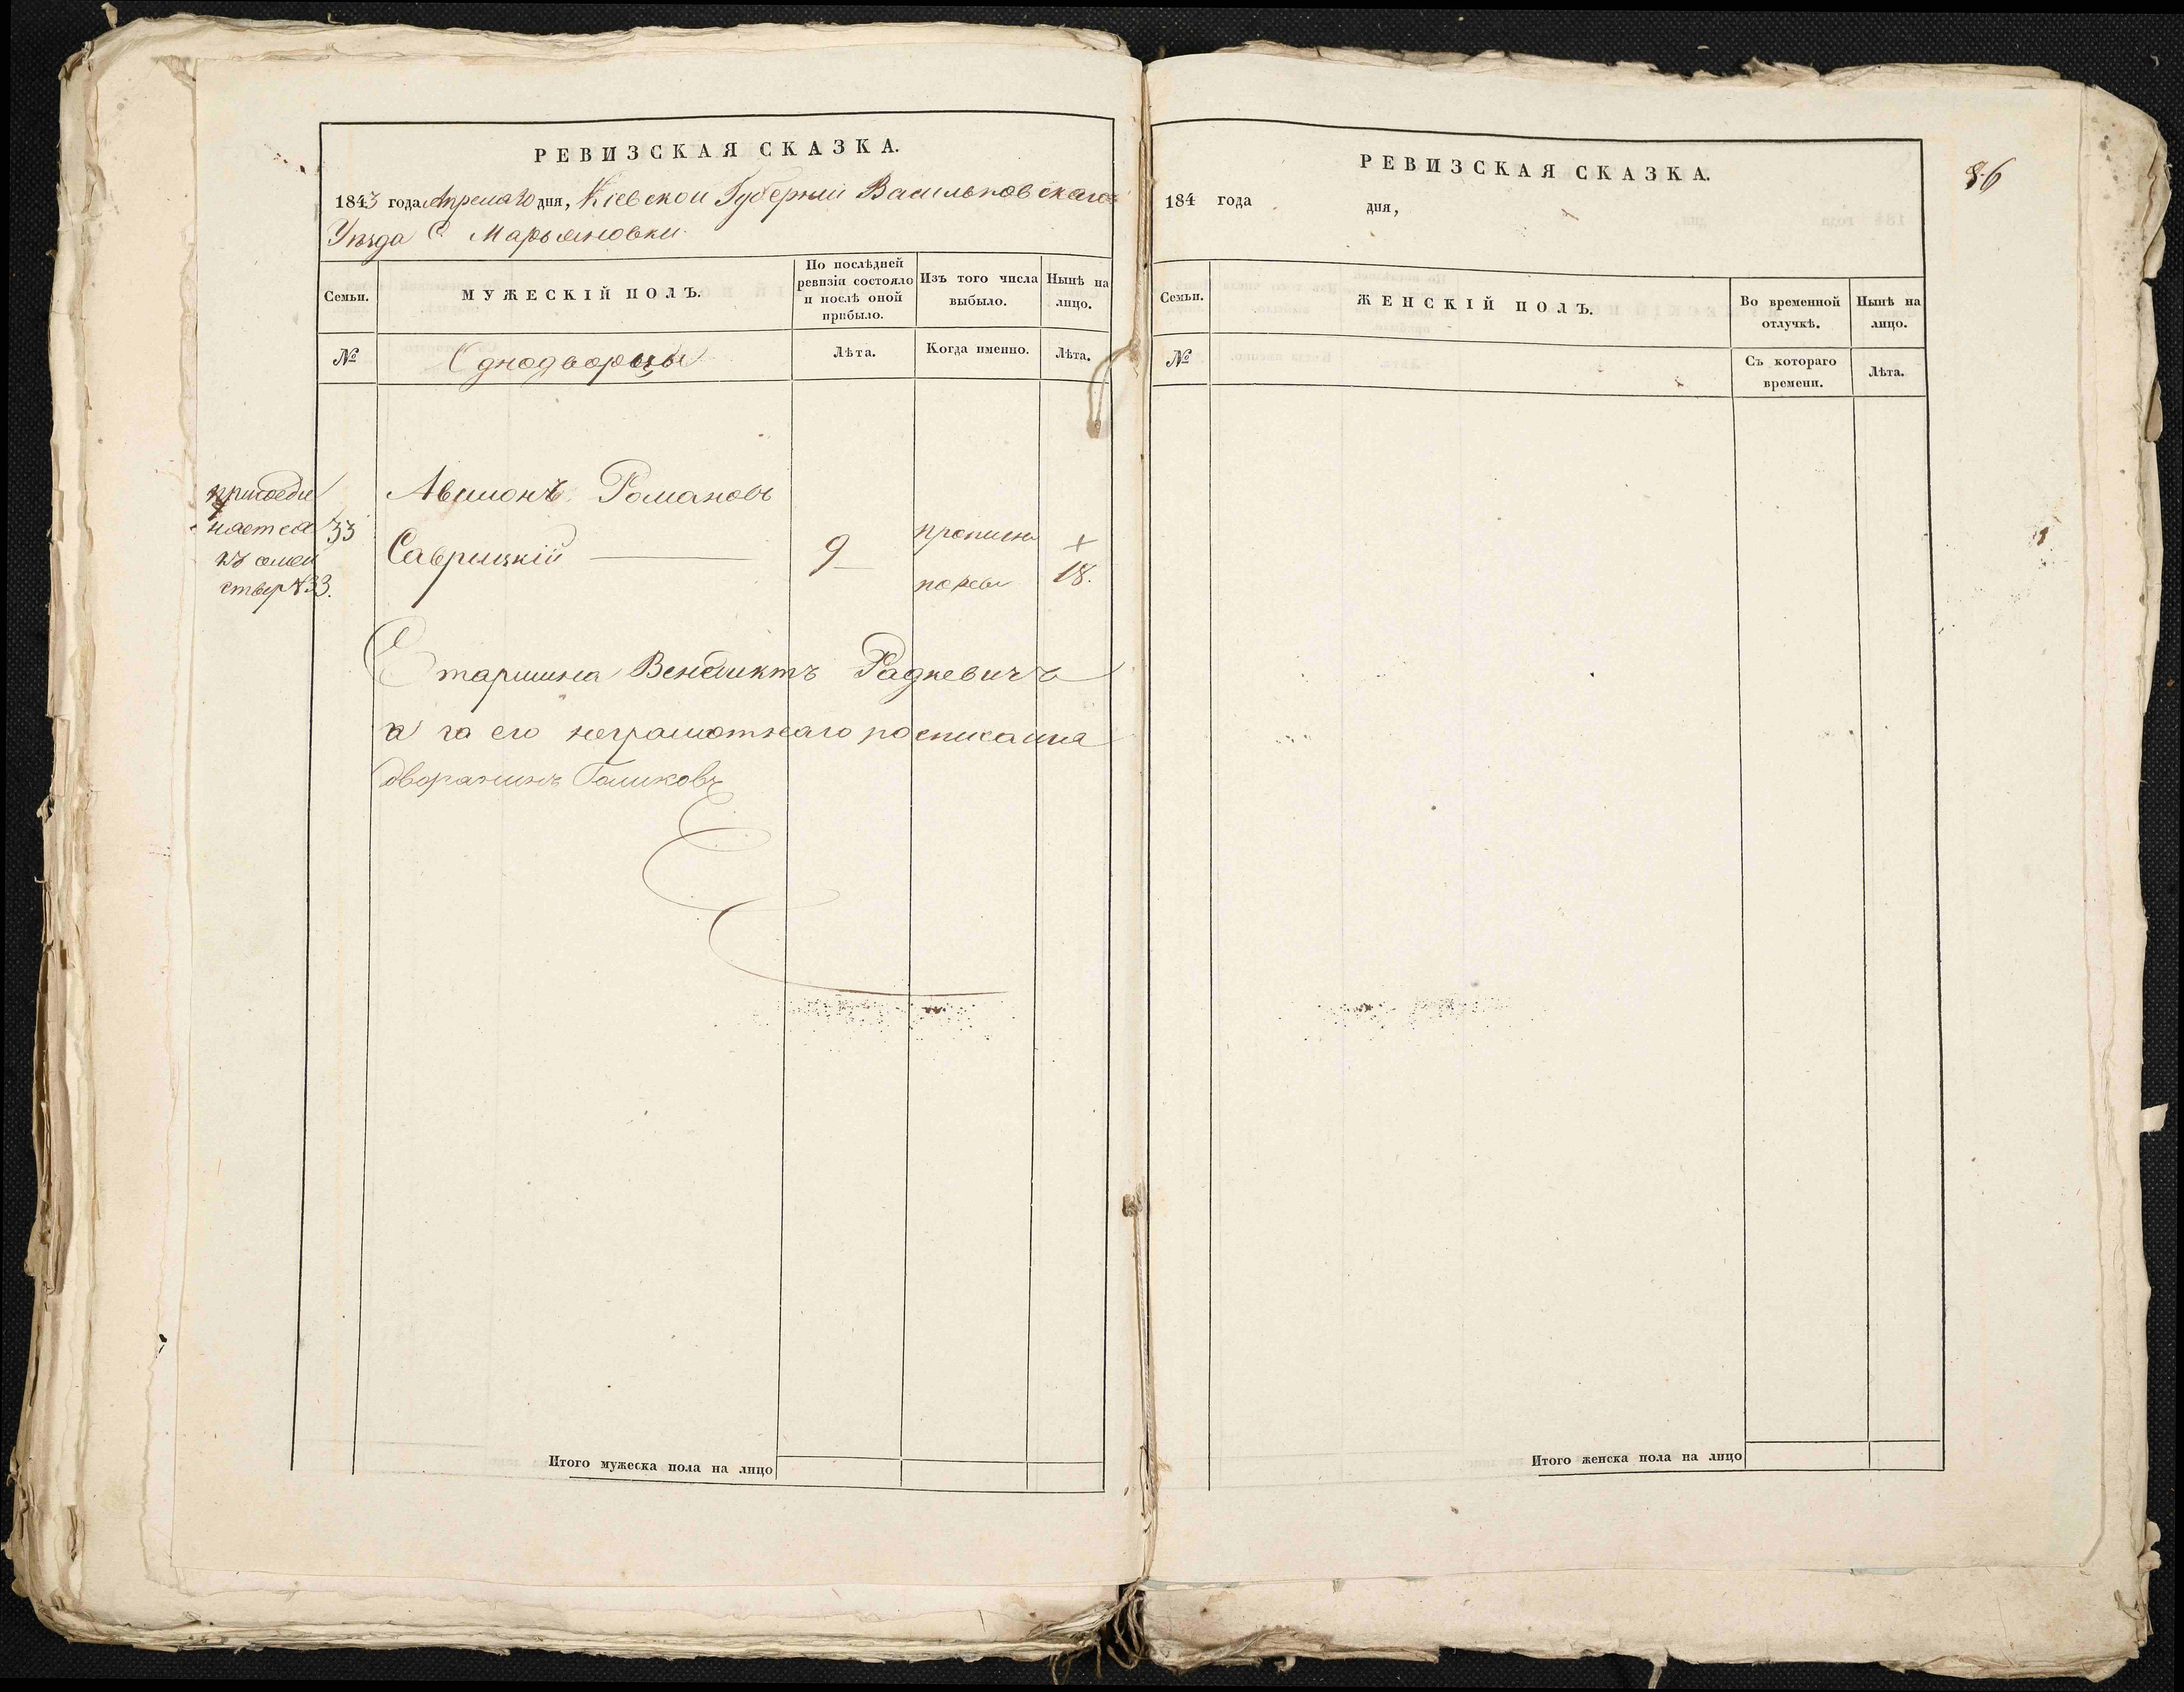 РЕВИЗСКАЯ СКАЗКА.
1843 года Апреля 10 дня, Кіевской Губерніи Васильковскаго
Уѣзда С. Марьяновки
Семьи.
МУЖЕСКІЙ ПОЛЪ.
По послѣдней
ревизіи состояло
и послѣ оной
прибыло.
Изъ того числа
выбыло.
Нынѣ на
лицо.
№
Однодворцы
Лѣта.
Когда именно.
Лѣта.
присоеди
няется
къ семей
33
Романовъ
Саврицкій
9
18.
Старшина Венедиктъ Радкевичъ
а за его неграмотнаго росписался
дворянинъ Голиковъ
Итого мужеска пола на лицо
РЕВИЗСКАЯ СКАЗКА.
184 года дня,
Семьи.
ЖЕНСКІЙ ПОЛЪ.
Во временной
отлучкѣ.
Нынѣ на
лицо.
№
Съ котораго
времени.
Лѣта.
Итого женска пола на лицо